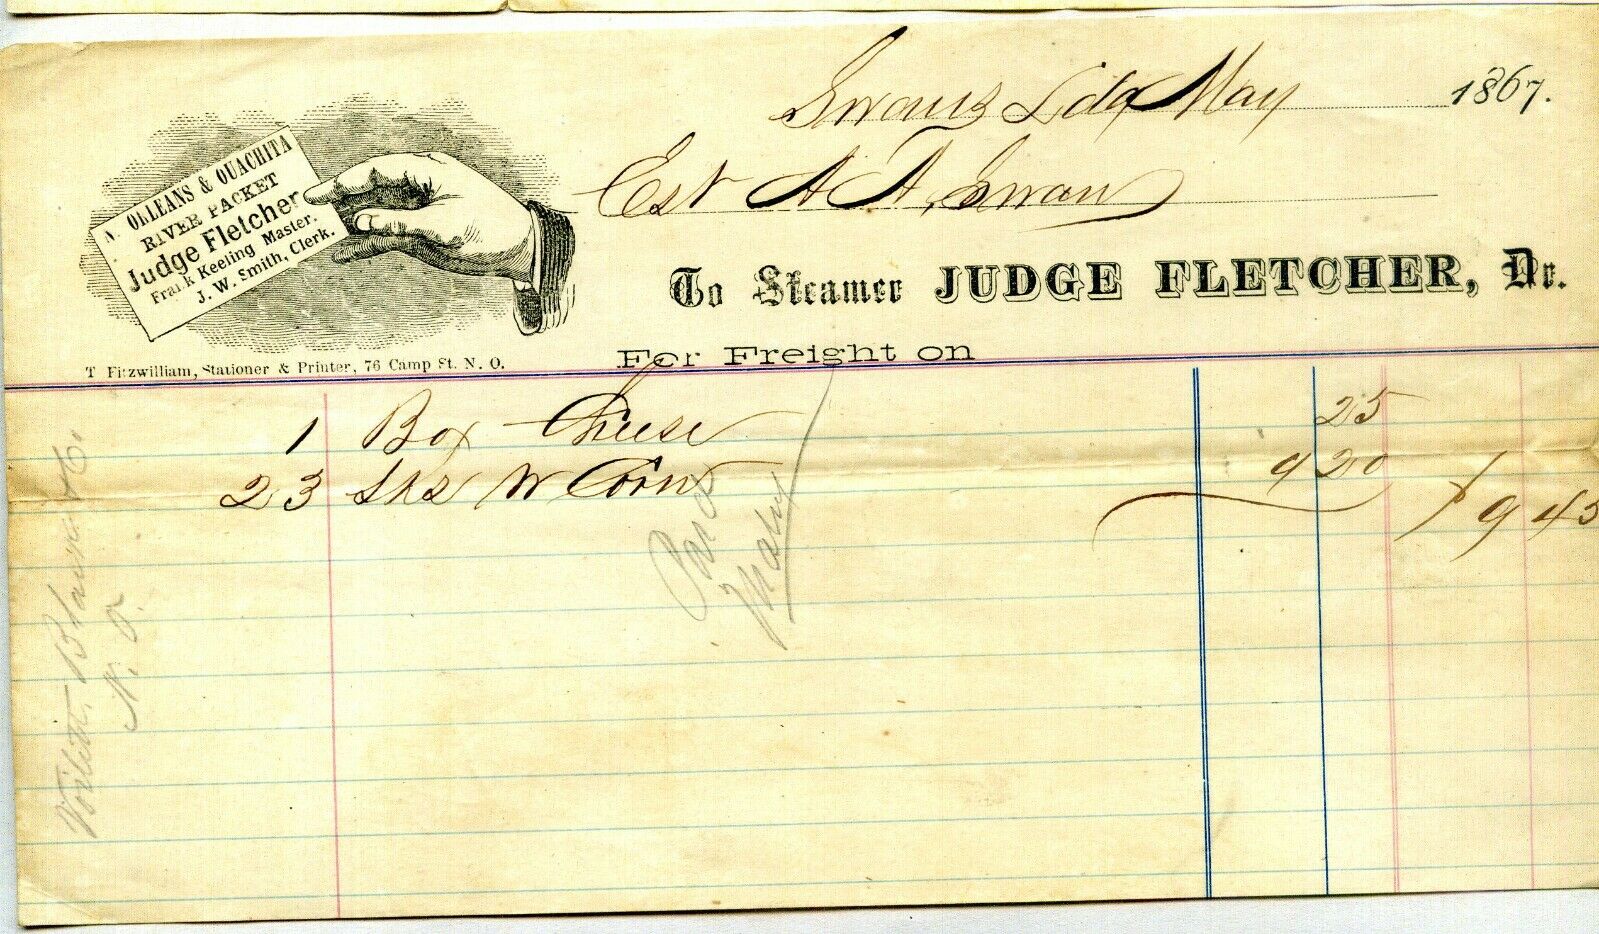 Swans Ldg May 1867.
Est A A Swan
N. ORLEANS & OUACHITA
RIVER PACKET
Judge Fletcher
Frank Keeling Master.
J. W. Smith, Clerk.
To Steamer JUDGE FLETCHER, Dr.
T Fitzwilliam, Stationer & Printer, 76 Camp St. N. O.
For Freight on
1 Box Cheese 25
23 Sks W Corn 9 20 $9 45
Paid
N. O.